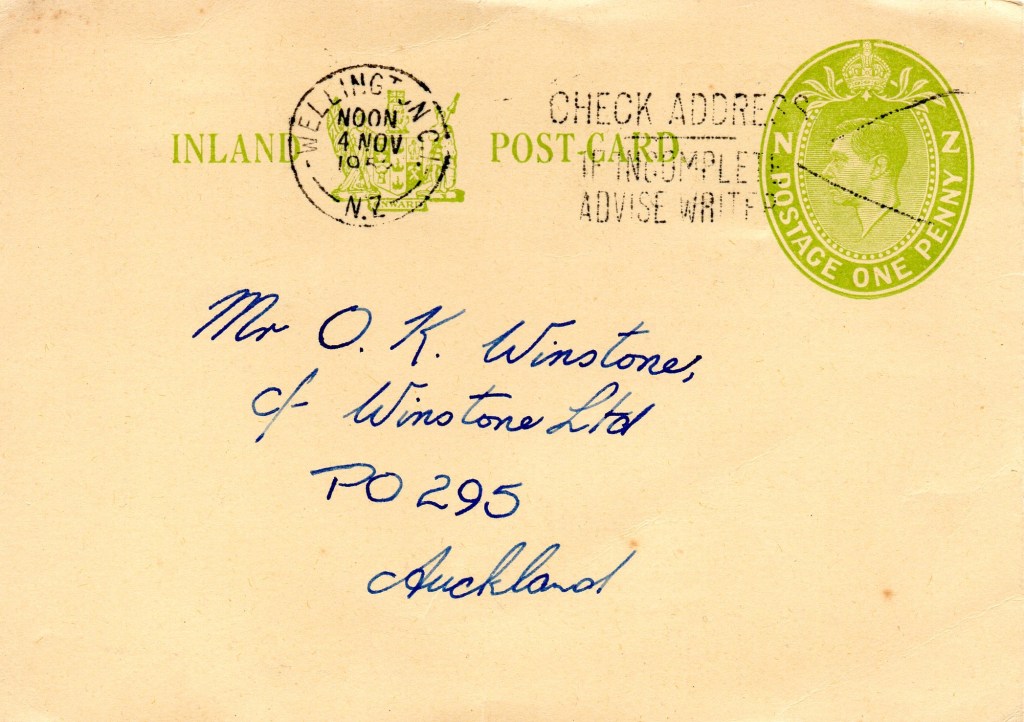 WELLINGTON C1.
NOON
4 NOV
N.Z
INLAND POST-CARD
ONWARD
CHECK ADDRESS
IF INCOMPLETE
ADVISE WRITER
N Z
POSTAGE ONE PENNY
Mr O. K. Winstone,
c/- Winstone Ltd
PO 295
Auckland